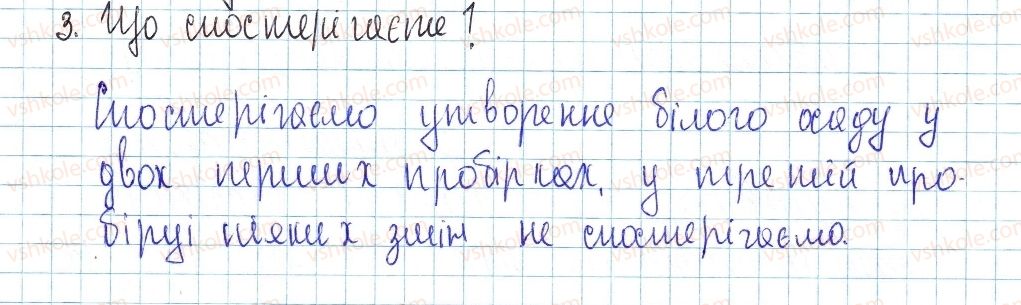 3. Що спостерігаєте?
Спостерігаємо утворення білого осаду у
двох перших пробірках, у третій про-
бірці ніяких змін не спостерігаємо.